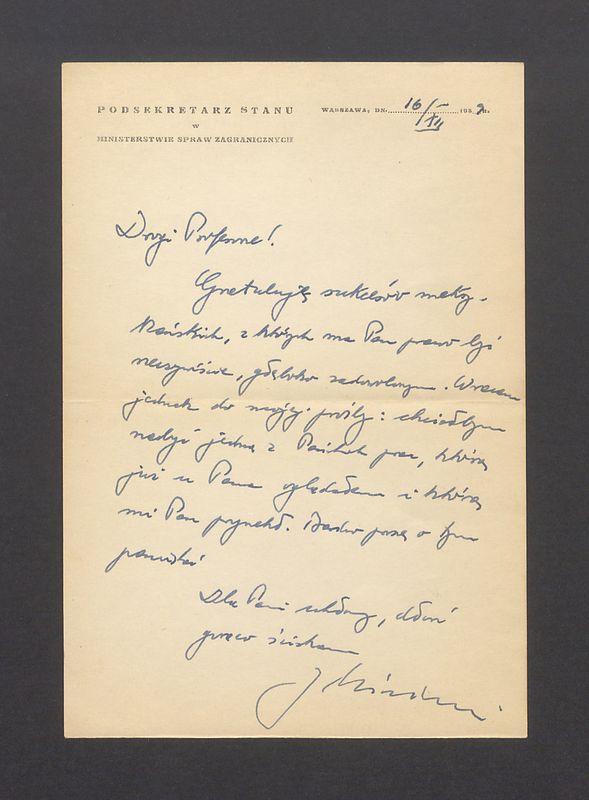 PODSEKRETARZ STANU
W
MINISTERSTWIE SPRAW ZAGRANICZNYCH
WARSZAWA, DN. 16/XII 1959 R.
Drogi Profesorze!
Gratuluję sukcesów meksy-
kańskich, z których ma Pan prawo być
rzeczywiście, głęboko zadowolonym. Wracam
jednak do mojej prośby: chciałbym
nabyć jedną z Pańskich prac, którą
już u Pana oglądałem i którą
mi Pan przyrzekł. Bardzo proszę o tym
pamiętać
Dla Pani ukłony, dłoń
ściskam
J